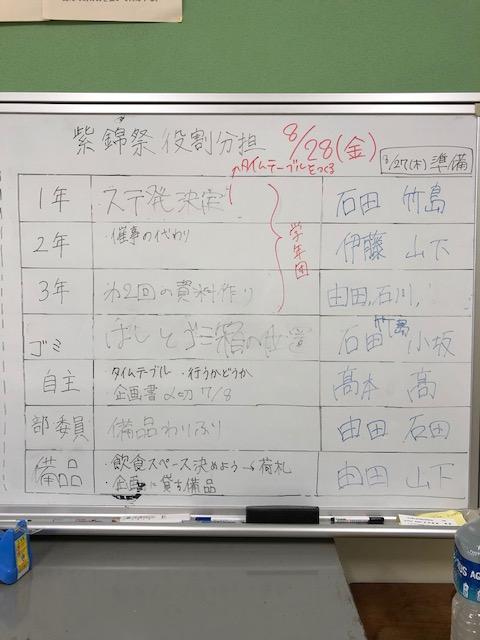 紫錦祭 役割分担
8/28(金)
↑タイムテーブルをつくる
8/27(木)準備
1年 ステ発決定 石田 竹島
2年 ・催事の代わり 伊藤 山下
3年 第2回の資料作り 由田,石川,
学年団
ゴミ ほしとゴミ箱の 石田 竹島 小坂
自主 タイムテーブル ・行うかどうか 高本 高
企画書〆切 7/8
部委員 備品わりふり 由田 石田
備品 ・飲食スペース決めよう→荷札 由田 山下
・企画に貸す備品